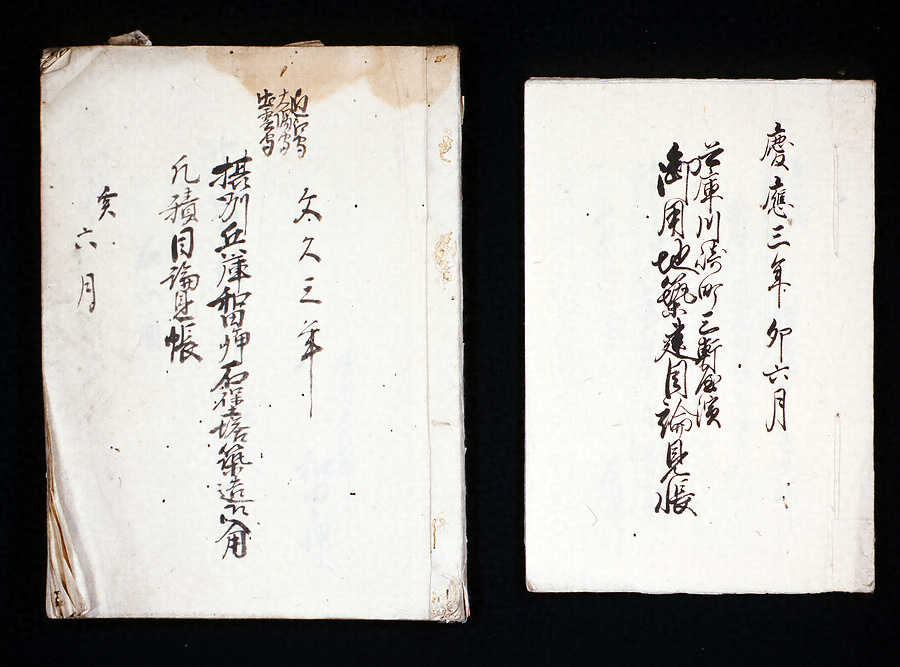 文久三年
近江守
大隅守
出雲守
摂州兵庫和田岬石堡塔築造御入用
凡積目論見帳
亥六月
慶應三年卯六月
兵庫川崎町三軒屋濱
御用地築建目論見帳